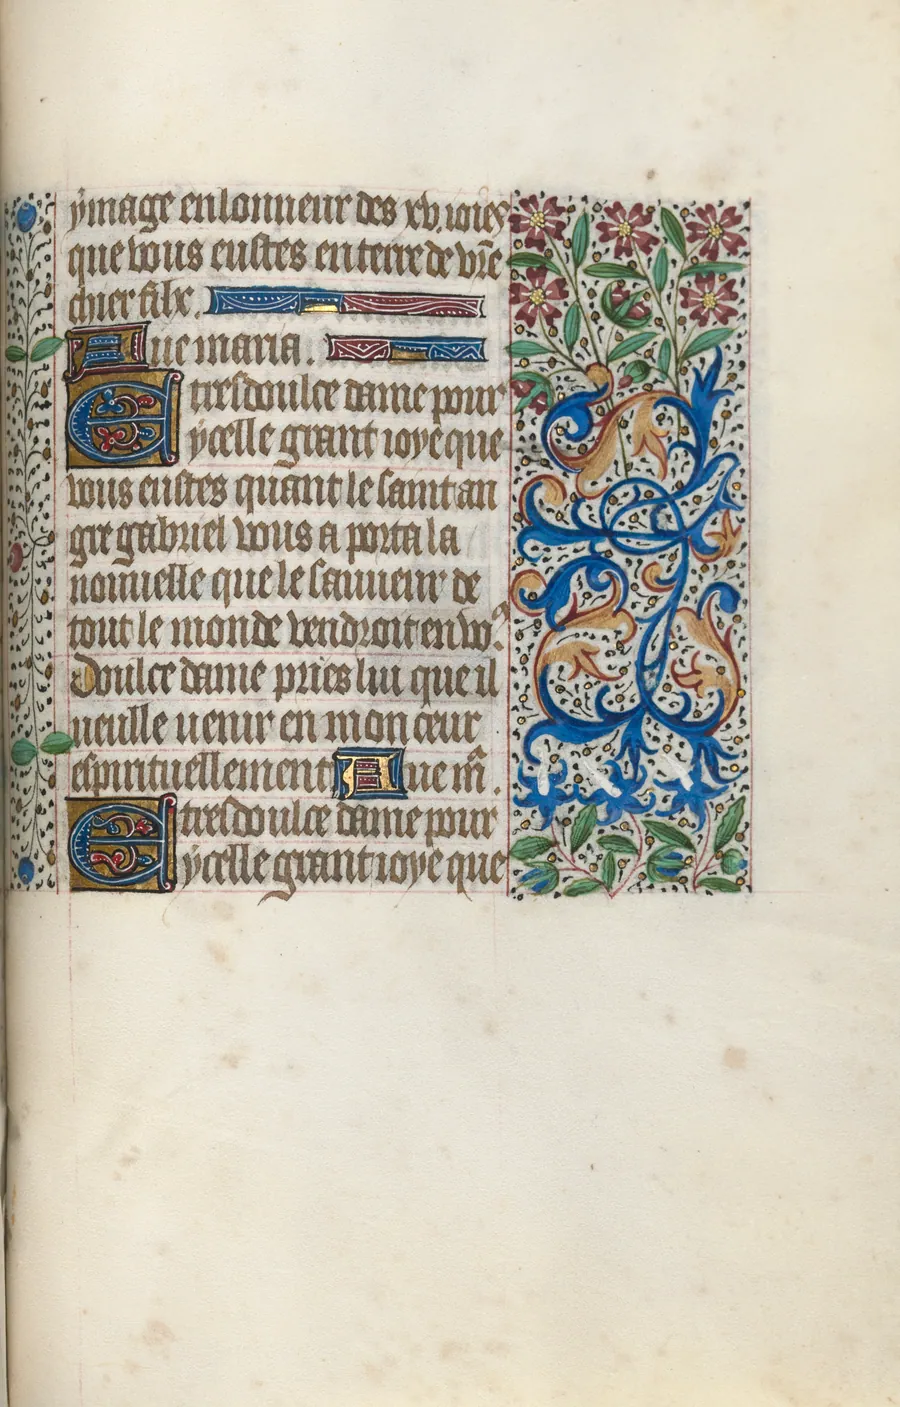 ymage en lonneur des xv. ioies
que vous eustes en terre de vr̄e
chier filx.
Aue maria.
E tresdoulce dame pour
ycelle grant ioye que
vous eustes quant le saint an
gre gabriel vous aporta la
nouuelle que le sauueur de
tout le monde vendroit en vo⁹.
Doulce dame pries lui que il
ueulle uenir en mon cœur
espirituellement Aue m̄.
E tresdoulce dame pour
ycelle grant ioye que